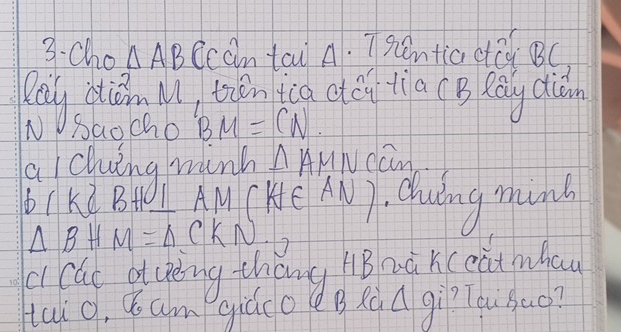 3. Cho Δ ABC cân tại A. Trên tia đối BC
lấy điểm M, trên tia đối tia CB lấy điểm
N sao cho BM = CN.
a/ Chứng minh Δ AMN cân.
b/ Kẻ BH ⊥ AM (K∈ AN). Chứng minh
Δ BHM = Δ CKN.
c/ Các đường thẳng HB và KC cắt nhau
tại O. Tam giác O B là Δ gì? Tại sao?